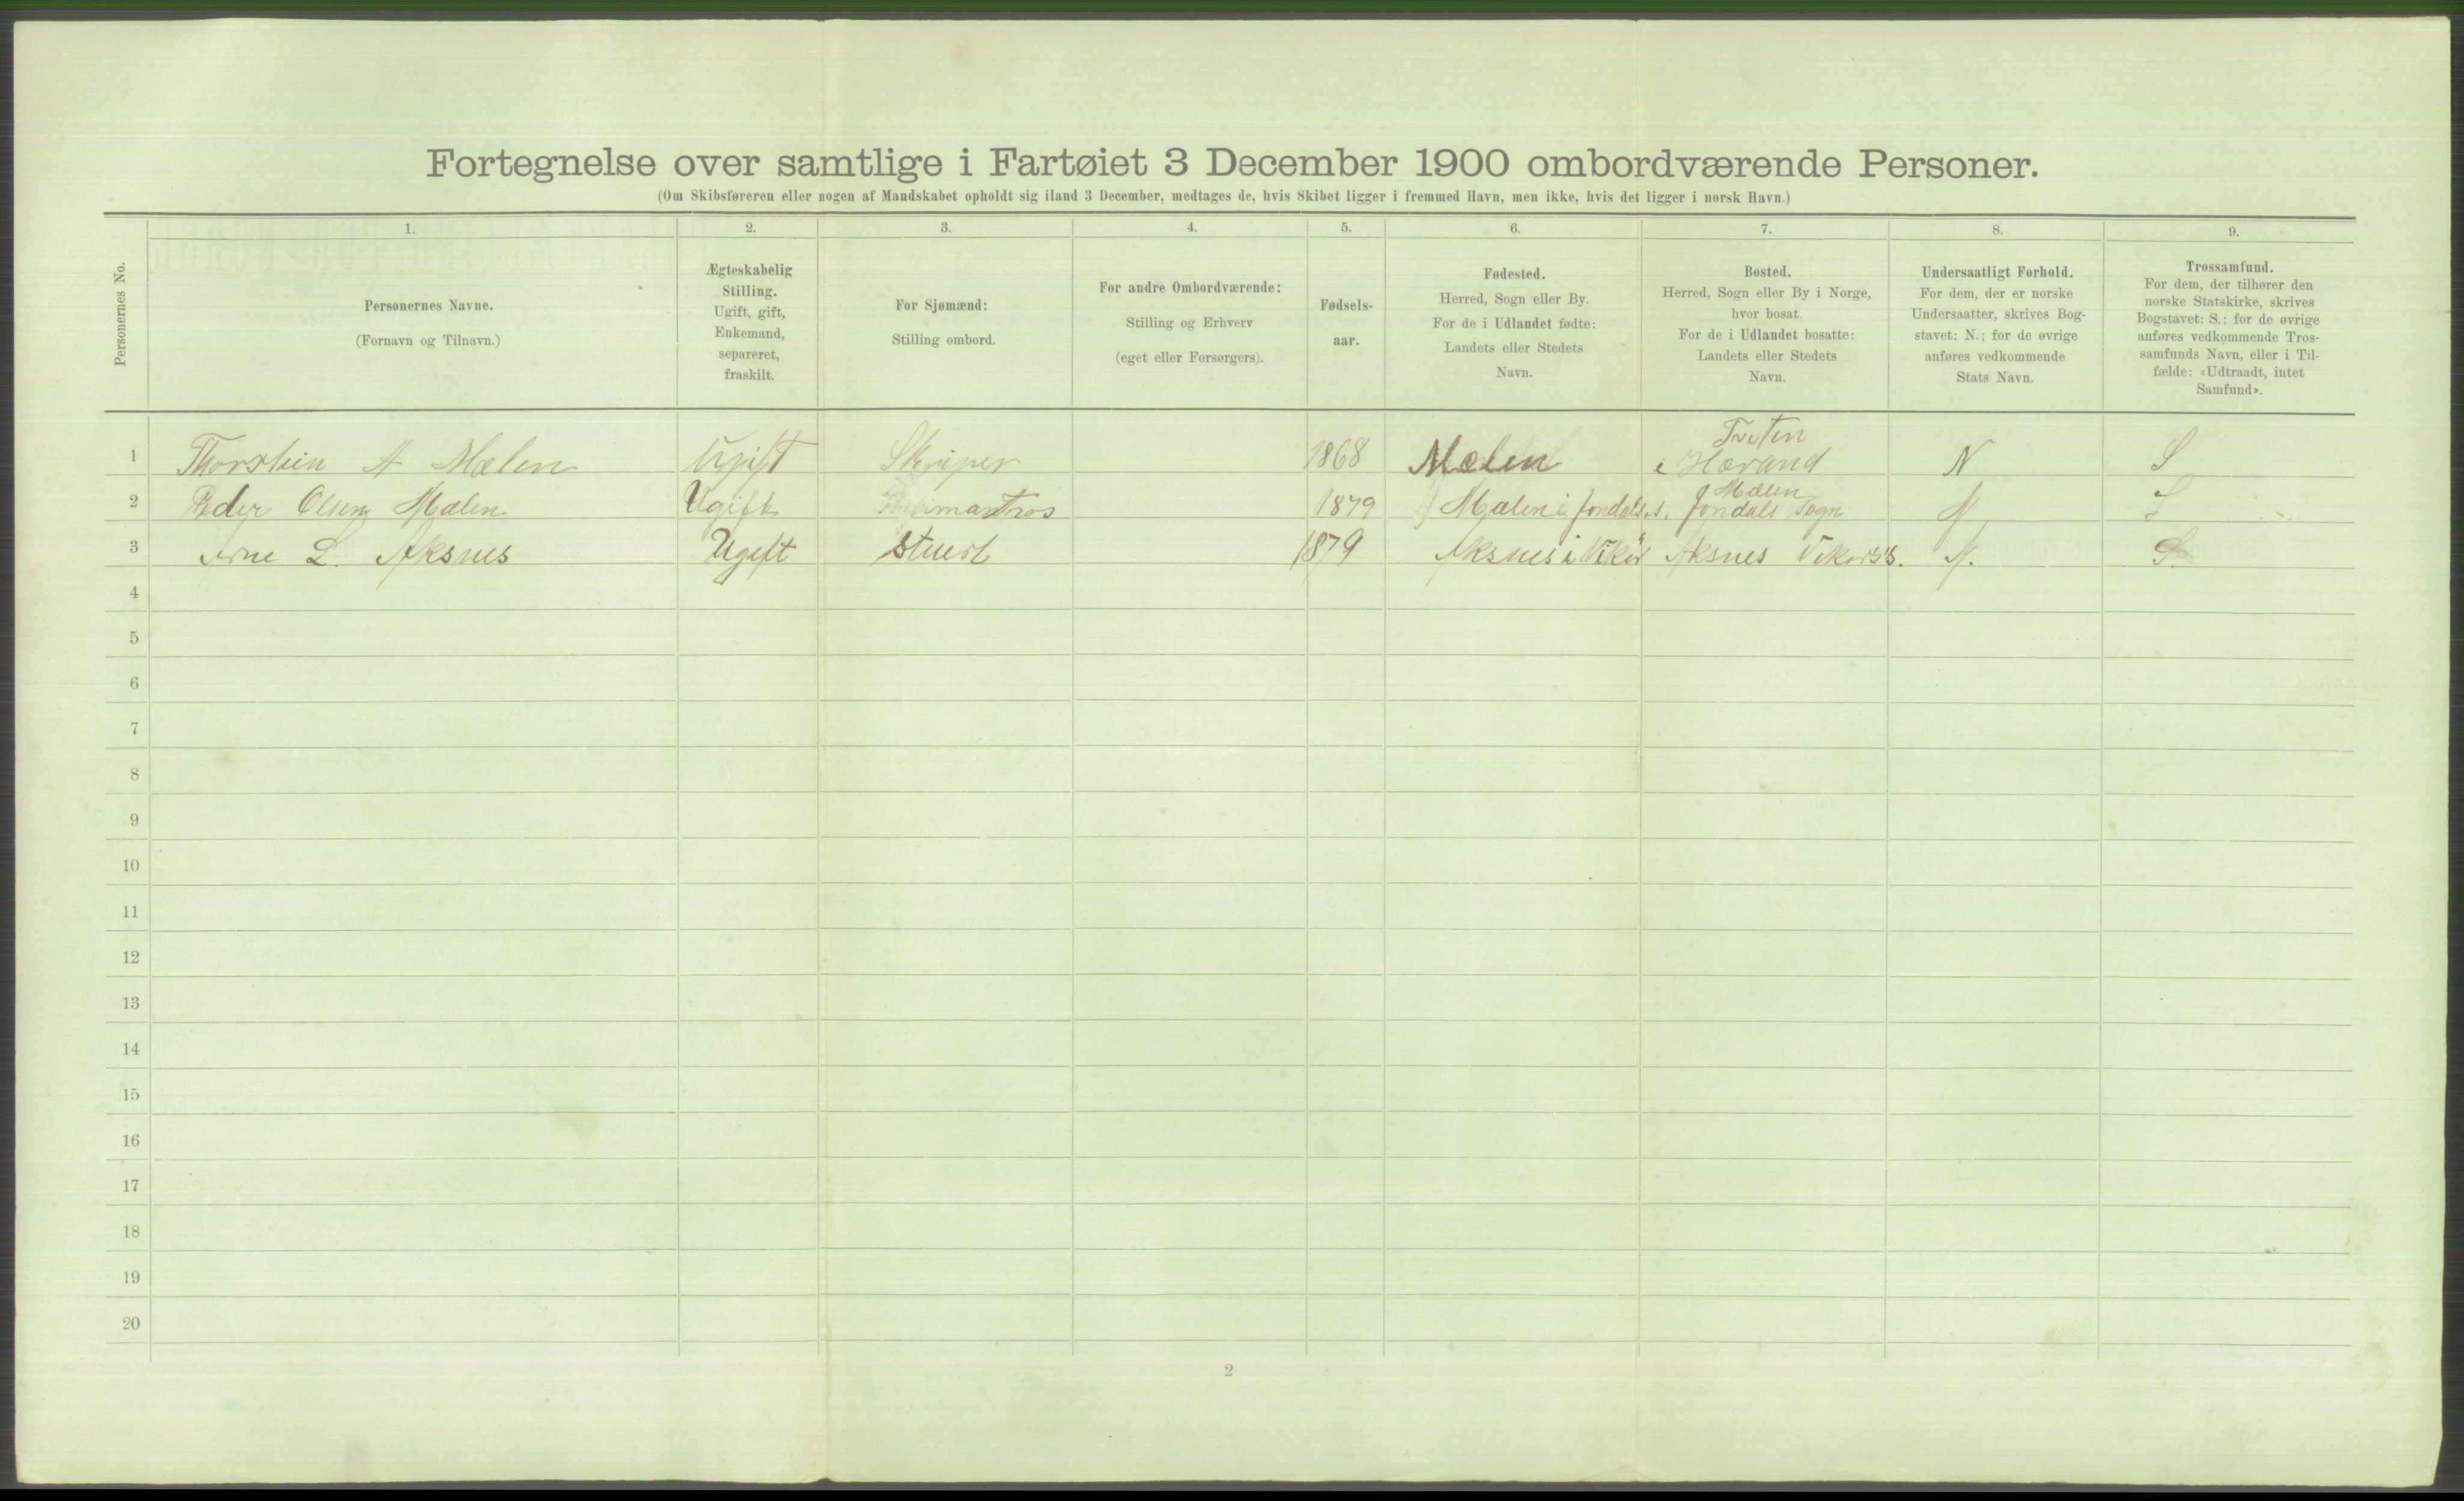 Fortegnelse over samtlige i Fartøiet 3 December 1900 ombordværende Personer.
(Om Skibsføreren eller nogen af Mandskabet opholdt sig iland 3 December, medtages de, hvis Skibet ligger i fremmed Havn, men ikke, hvis det ligger i norsk Havn.)
Personernes No.
1.
Personernes Navne.
(Fornavn og Tilnavn.)
2.
Ægteskabelig
Stilling.
Ugift, gift,
Enkemand,
separeret,
fraskilt.
3.
For Sjømænd:
Stilling ombord.
4.
For andre Ombordværende:
Stilling og Erhverv
(eget eller Forsørgers).
5.
Fødsels-
aar.
6.
Fødested.
Herred, Sogn eller By.
For de i Udlandet fødte:
Landets eller Stedets
Navn.
7.
Bosted.
Herred, Sogn eller By i Norge,
hvor bosat.
For de i Udlandet bosatte:
Landets eller Stedets
Navn.
8.
Undersaatligt Forhold.
For dem, der er norske
Undersaatter, skrives Bog-
stavet: N.; for de øvrige
anføres vedkommende
Stats Navn.
9.
Trossamfund.
For dem, der tilhører den
norske Statskirke, skrives
Bogstavet: S.; for de øvrige
anføres vedkommende Tros-
samfunds Navn, eller i Til-
fælde: «Udtraadt, intet
Samfund».
Tveten
1 Thorstein A Mælen Ugift Skriper 1868 Mælen i N S
Mælen
2 Peder Olsen Mælen Ugift 1879 Mælen i Jondals s. Jondals Sogn N S
3 Arne L. Aksnes Ugift Stuert 1879 Aksnes i Vikör Aksnes Vikørs s. N. S.
4
5
6
7
8
9
10
11
12
13
14
15
16
17
18
19
20
2